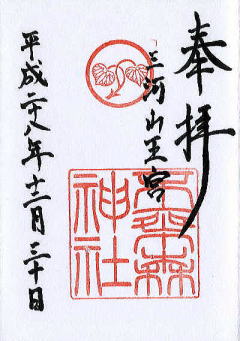 奉拝
三河山王宮
神社
平成二十八年十二月三十日